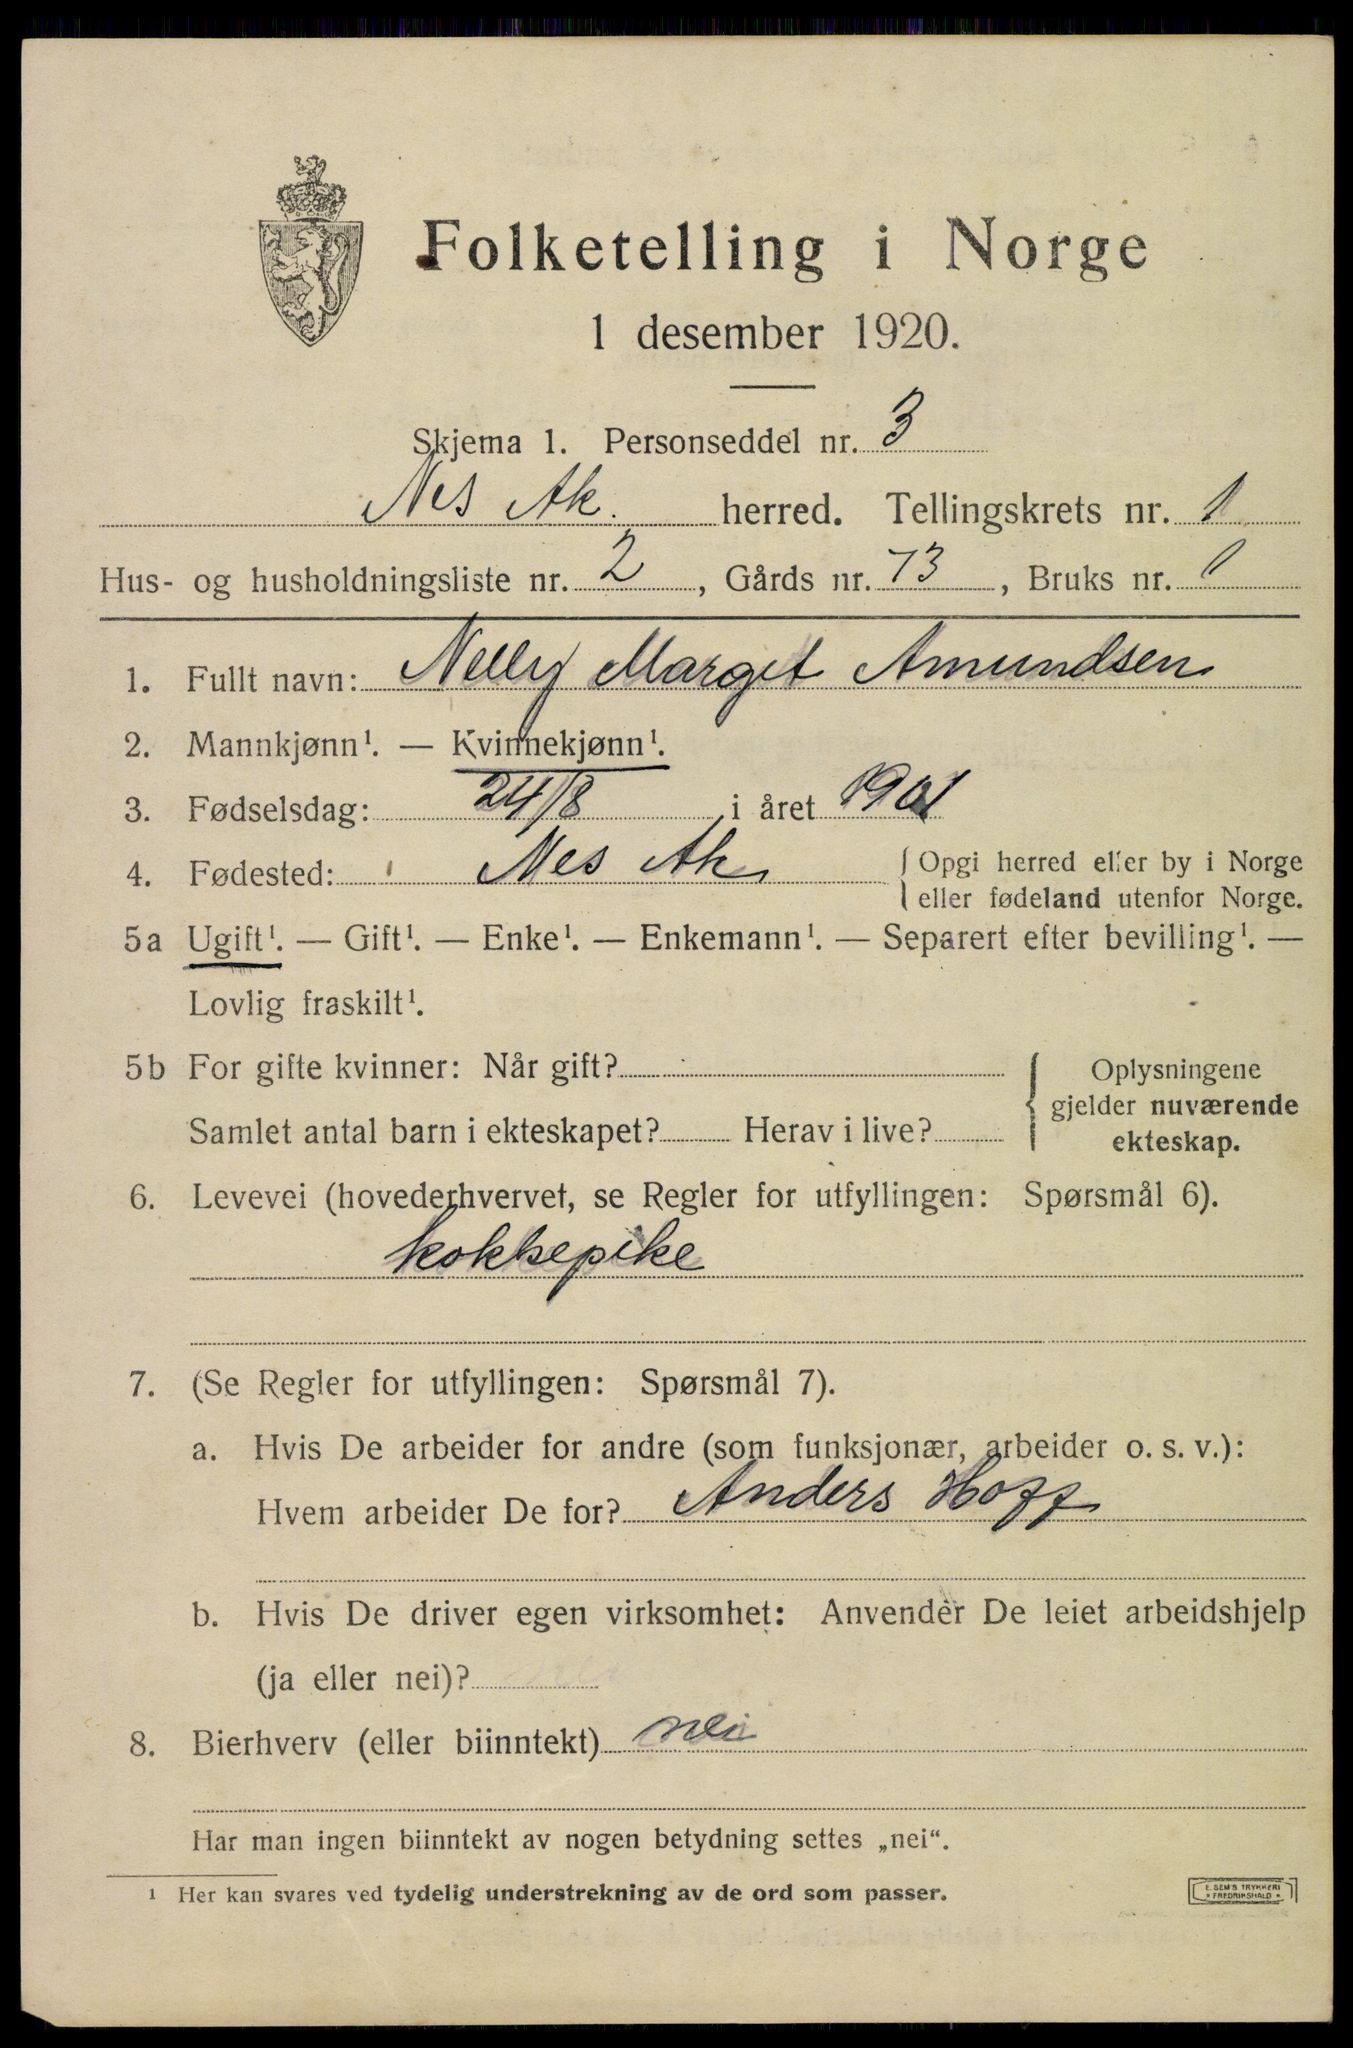 Folketelling i Norge
1 desember 1920.
Skjema 1. Personseddel nr. 3
Nes Ak. herred. Tellingskrets nr. 1
Hus- og husholdningsliste nr. 2, Gårds nr. 73, Bruks nr. 1
1. Fullt navn: Nelly Marget Amundsen
2. Mannkjønn¹. — Kvinnekjønn¹.
3. Fødselsdag: 24/8 i året 1901
4. Fødested: Nes Ak { Opgi herred eller by i Norge
eller fødeland utenfor Norge.
5a Ugift¹. — Gift¹. — Enke¹. — Enkemann¹. — Separert efter bevilling¹. —
Lovlig fraskilt¹.
5b For gifte kvinner: Når gift? { Oplysningene
gjelder nuværende
Samlet antal barn i ekteskapet? Herav i live? ekteskap.
6. Levevei (hovederhvervet, se Regler for utfyllingen: Spørsmål 6).
kokkepike
7. (Se Regler for utfyllingen: Spørsmål 7).
a. Hvis De arbeider for andre (som funksjonær, arbeider o. s. v.):
Hvem arbeider De for? Anders Hoff
b. Hvis De driver egen virksomhet: Anvender De leiet arbeidshjelp
(ja eller nei)?
8. Bierhverv (eller biinntekt) nei
Har man ingen biinntekt av nogen betydning settes „nei“.
¹ Her kan svares ved tydelig understrekning av de ord som passer.
E. SEM'S TRYKKERI
• FREDRIKSHALD •